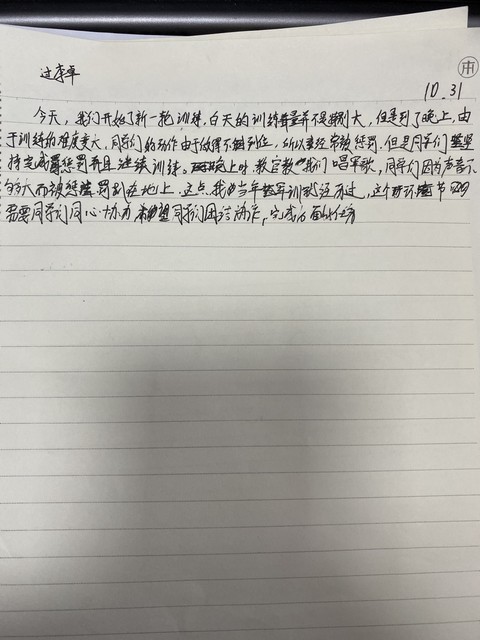 过李卓
本
10.31
今天，我们开始了新一轮训练，白天的训练量并不是特别大，但是到了晚上，由
于训练的难度变大，同学们的动作由于做得不到位，所以要经常被惩罚。但是同学们坚
持完成惩罚并且继续训练。晚上时，教官教我们唱军歌，同学们因为声音不
够大而被惩罚趴在地上。这点，我当年军训就经历过，这个环节
需要同学们同心协力，希望同学们团结协作，完成后面的任务